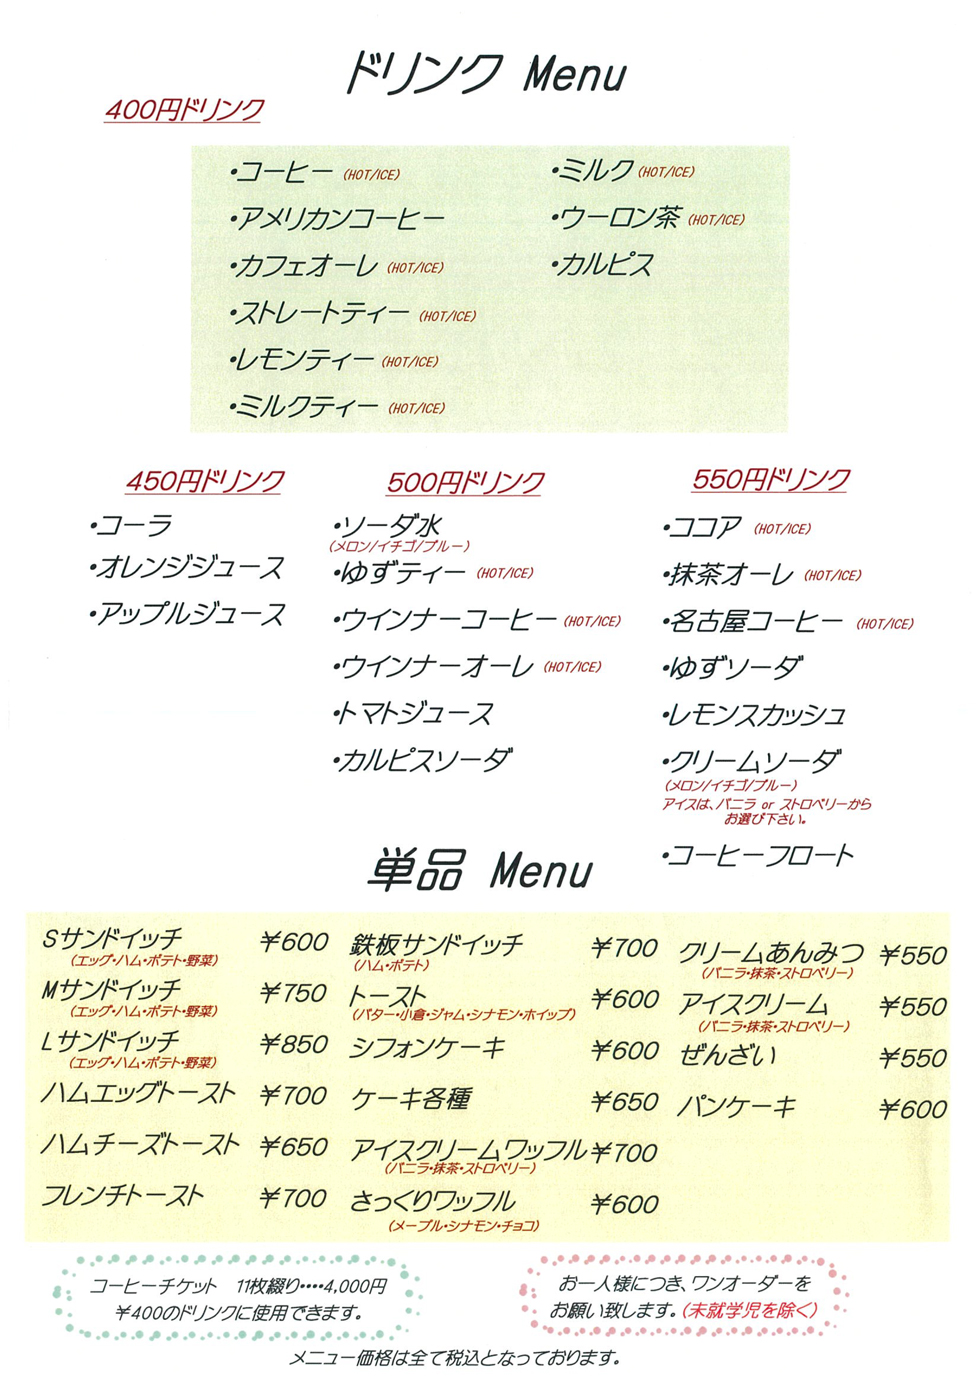 ドリンク Menu
400円ドリンク
・コーヒー (HOT/ICE)
・アメリカンコーヒー
・カフェオーレ (HOT/ICE)
・ストレートティー (HOT/ICE)
・レモンティー (HOT/ICE)
・ミルクティー (HOT/ICE)
・ミルク (HOT/ICE)
・ウーロン茶 (HOT/ICE)
・カルピス
450円ドリンク
・コーラ
・オレンジジュース
・アップルジュース
500円ドリンク
・ソーダ水
(メロン/イチゴ/ブルー)
・ゆずティー (HOT/ICE)
・ウインナーコーヒー (HOT/ICE)
・ウインナーオーレ (HOT/ICE)
・トマトジュース
・カルピスソーダ
550円ドリンク
・ココア (HOT/ICE)
・抹茶オーレ (HOT/ICE)
・名古屋コーヒー (HOT/ICE)
・ゆずソーダ
・レモンスカッシュ
・クリームソーダ
(メロン/イチゴ/ブルー)
アイスは、バニラ or ストロベリーから
お選び下さい。
・コーヒーフロート
単品 Menu
Sサンドイッチ ¥600
(エッグ・ハム・ポテト・野菜)
Mサンドイッチ ¥750
(エッグ・ハム・ポテト・野菜)
Lサンドイッチ ¥850
(エッグ・ハム・ポテト・野菜)
ハムエッグトースト ¥700
ハムチーズトースト ¥650
フレンチトースト ¥700
鉄板サンドイッチ ¥700
(ハム・ポテト)
トースト ¥600
(バター・小倉・ジャム・シナモン・ホイップ)
シフォンケーキ ¥600
ケーキ各種 ¥650
アイスクリームワッフル ¥700
(バニラ・抹茶・ストロベリー)
さっくりワッフル ¥600
(メープル・シナモン・チョコ)
クリームあんみつ ¥550
(バニラ・抹茶・ストロベリー)
アイスクリーム ¥550
(バニラ・抹茶・ストロベリー)
ぜんざい ¥550
パンケーキ ¥600
コーヒーチケット 11枚綴り・・・・4,000円
¥400のドリンクに使用できます。
お一人様につき、ワンオーダーを
お願い致します。(未就学児を除く)
メニュー価格は全て税込となっております。